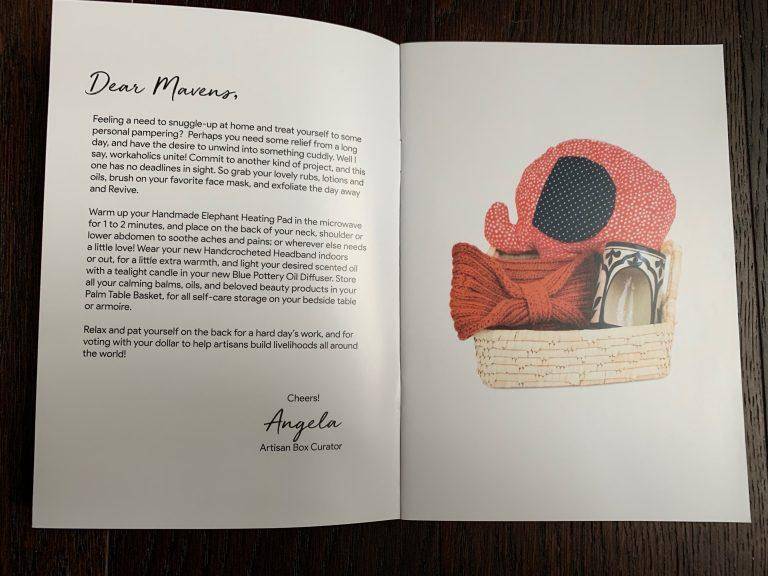 Dear Mavens,
Feeling a need to snuggle-up at home and treat yourself to some
personal pampering? Perhaps you need some relief from a long
day, and have the desire to unwind into something cuddly. Well I
say, workaholics unite! Commit to another kind of project, and this
one has no deadlines in sight. So grab your lovely rubs, lotions and
oils, brush on your favorite face mask, and exfoliate the day away
and Revive.
Warm up your Handmade Elephant Heating Pad in the microwave
for 1 to 2 minutes, and place on the back of your neck, shoulder or
lower abdomen to soothe aches and pains; or wherever else needs
a little love! Wear your new Handcrocheted Headband indoors
or out, for a little extra warmth, and light your desired scented oil
with a tealight candle in your new Blue Pottery Oil Diffuser. Store
all your calming balms, oils, and beloved beauty products in your
Palm Table Basket, for all self-care storage on your bedside table
or armoire.
Relax and pat yourself on the back for a hard day's work, and for
voting with your dollar to help artisans build livelihoods all around
the world!
Cheers!
Angela
Artisan Box Curator